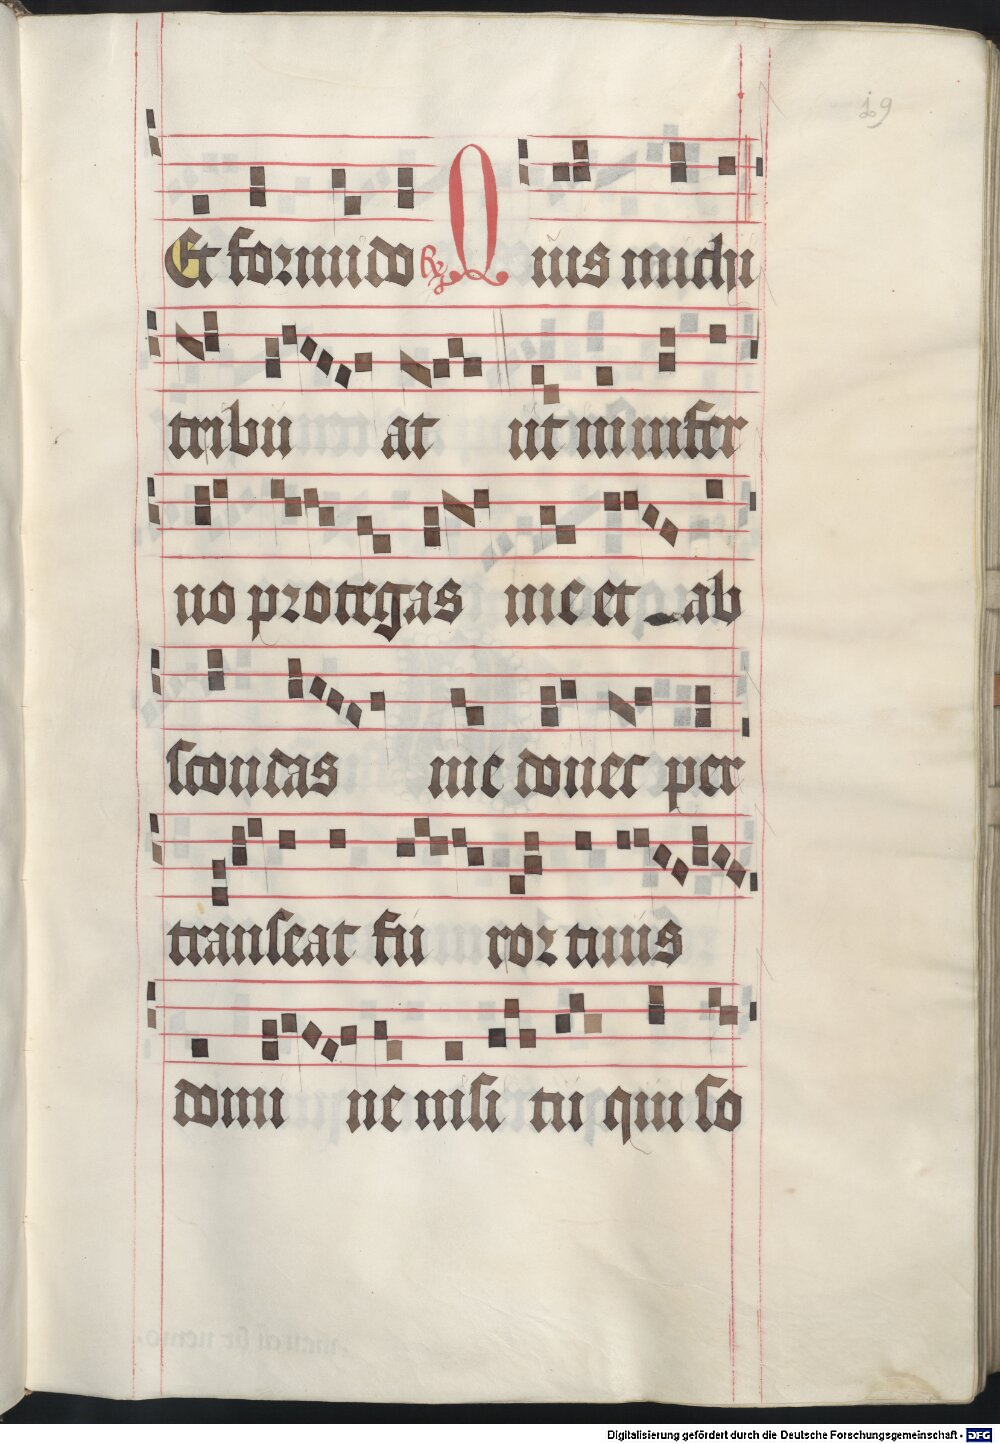 19
Et formido R Quis michi
tribu at ut in infer
no protegas me et ab
scondas me donec per
transeat fu ror tuus
domi ne nisi tu qui so
Digitalisierung gefördert durch die Deutsche Forschungsgemeinschaft - DFG